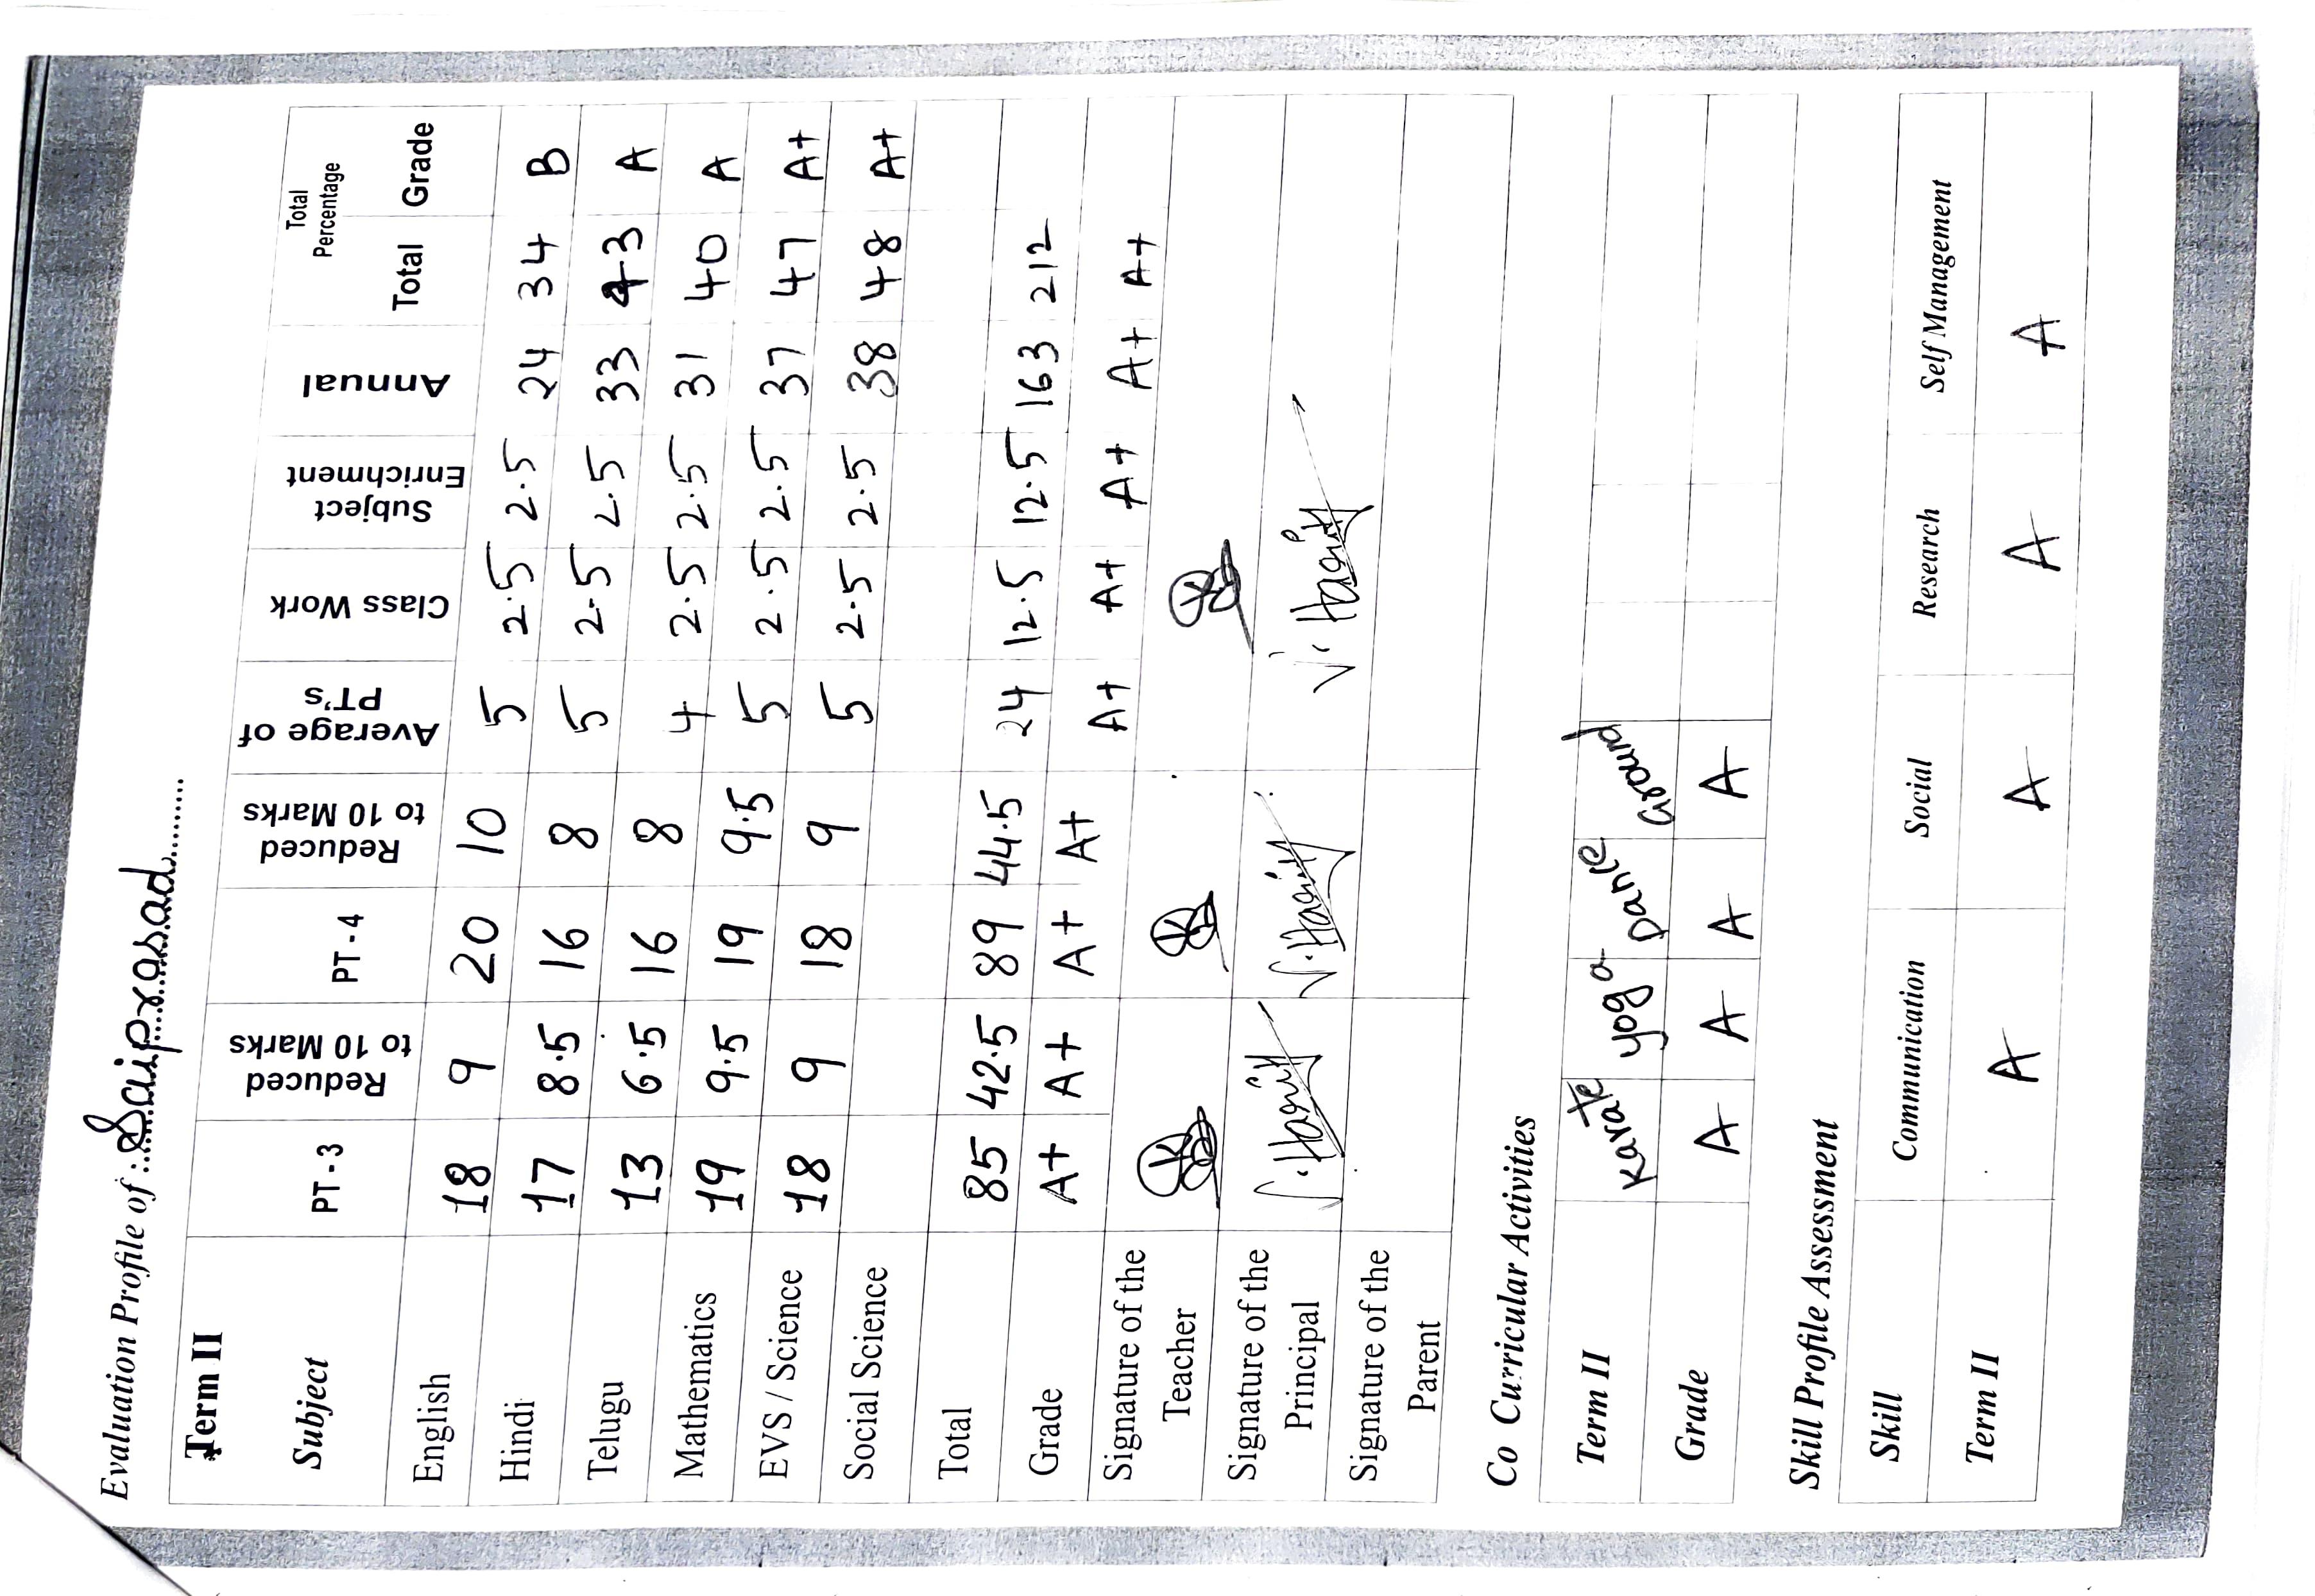 Evaluation Profile of : Saiprasad
Term II
Subject PT - 3 Reduced to 10 Marks PT - 4 Reduced to 10 Marks Average of PT's Class Work Subject Enrichment Annual Total Percentage Total Grade
English 18 9 20 10 5 2.5 2.5 24 34 B
Hindi 17 8.5 16 8 5 2.5 2.5 33 43 A
Telugu 13 6.5 16 8 4 2.5 2.5 31 40 A
Mathematics 19 9.5 19 9.5 5 2.5 2.5 37 47 A+
EVS / Science 18 9 18 9 5 2.5 2.5 38 48 A+
Social Science
Total 85 42.5 89 44.5 24 12.5 12.5 163 212
Grade A+ A+ A+ A+ A+ A+ A+ A+ A+
Signature of the Teacher
Signature of the Principal
Signature of the Parent
Co Curricular Activities
Term II Karate yoga Dance Ground
Grade A A A A
Skill Profile Assessment
Skill Communication Social Research Self Management
Term II A A A A